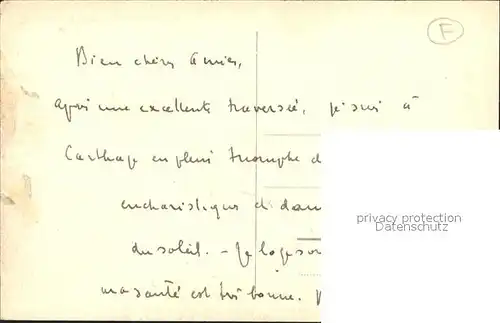 F
Bien chers Amies,
après une excellente traversée, je suis à
Carthage en plein triomphe d
eucharistique et dans
du soleil. - Je loge sur
ma santé est très bonne.
privacy protection
Datenschutz